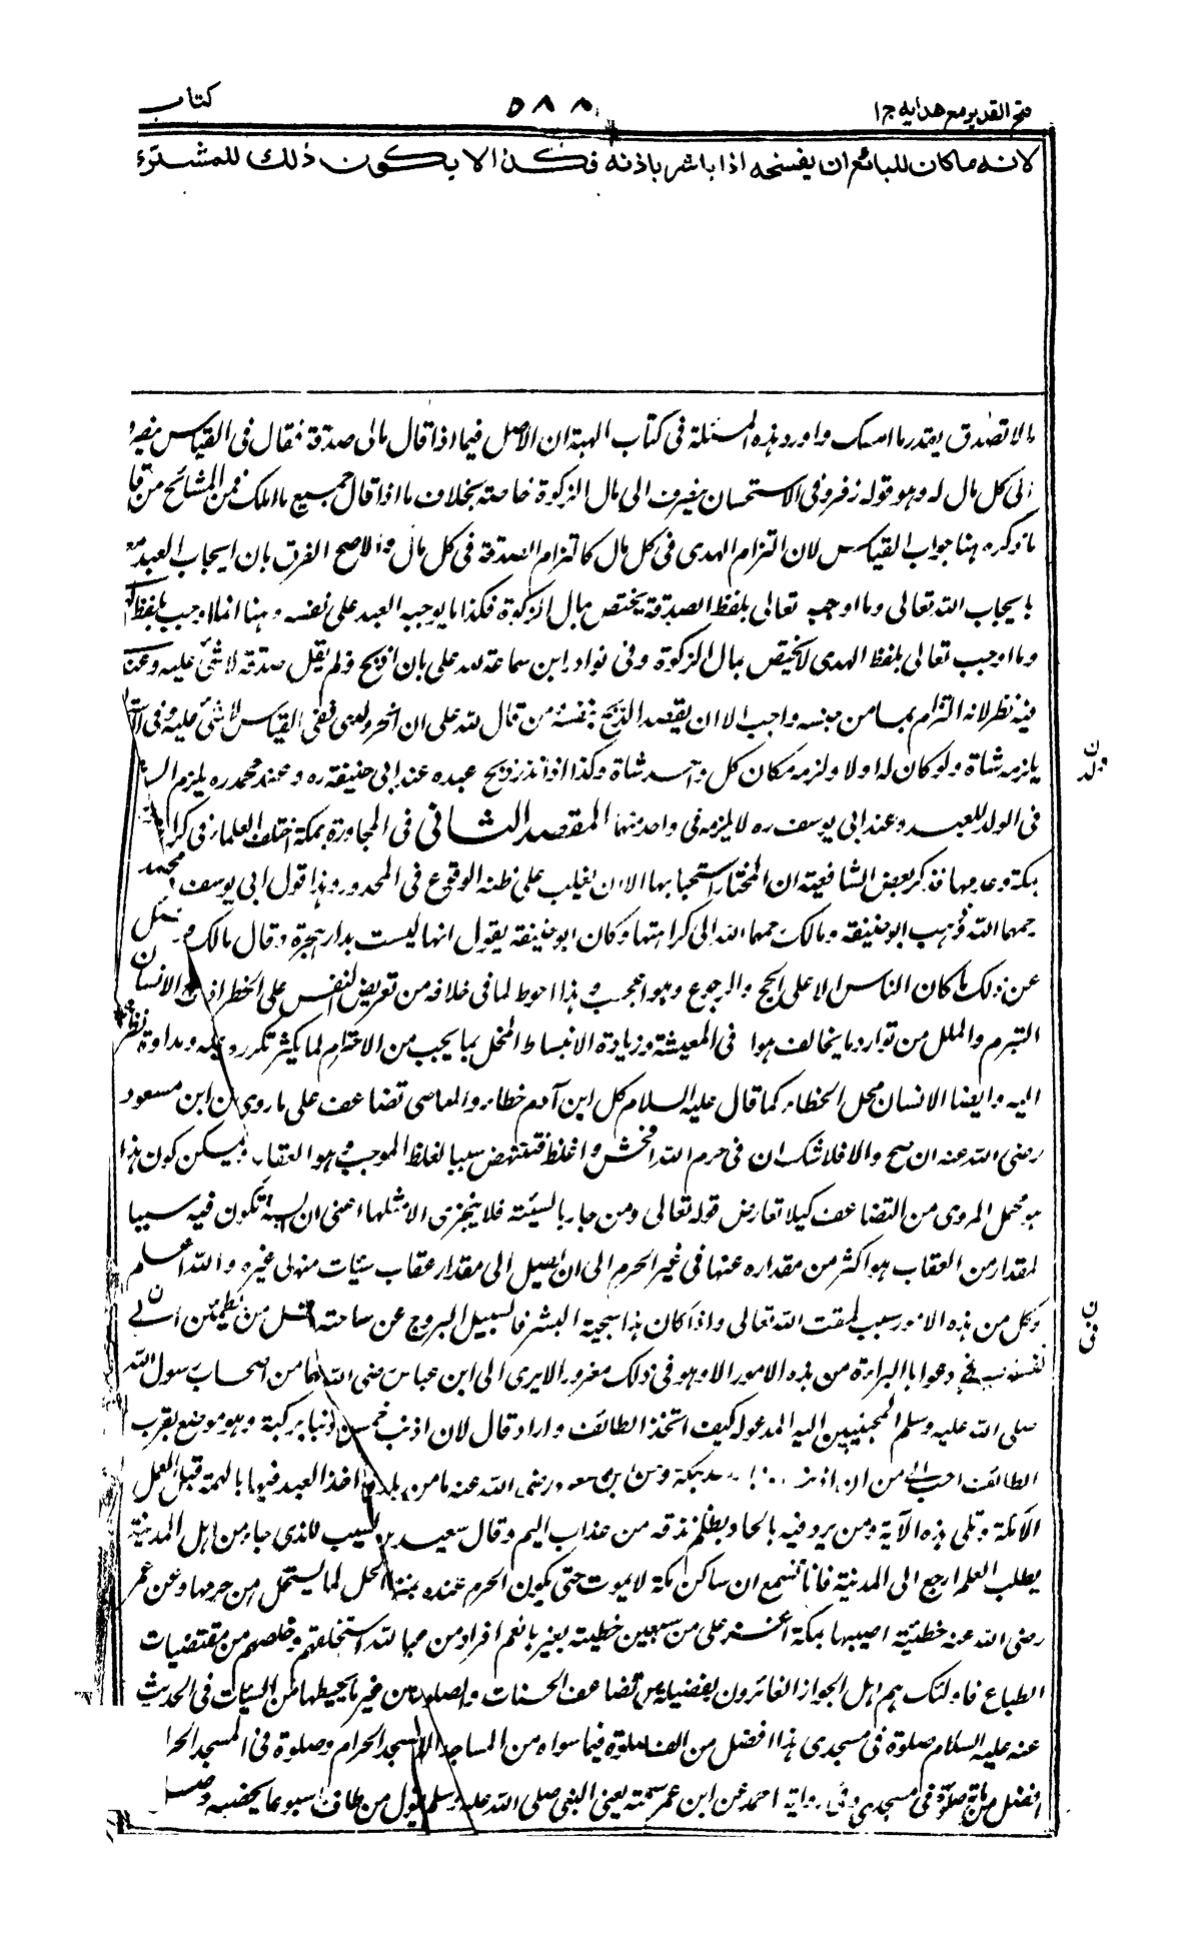 فتح القدير مع هدايه ج ١
٥٨٨
كتاب
لانه ما كان للبائع ان يفسخه اذا باشر باذنه فكذا لا يكون ذلك للمشترى
الا تصدق بقدر ما امسك واورد هذه المسئلة فى كتاب الهبة ان الاصل فيما اذا قال مالى صدقة فقال فى القياس ينصرف
الى كل مال له وهو قوله زفر وفى الاستحسان ينصرف الى مال الزكوة خاصة بخلاف ما اذا قال جميع ما املك فمن المشائخ من قا
ما ذكره هنا جواب القياس لان التزام الهدى فى كل مال كالتزام الصدقة فى كل مال والاصح الفرق بان ايجاب العبد
بايجاب الله تعالى وما اوجبه تعالى بلفظ الصدقة يختص بمال الزكوة فكذا ما يوجبه العبد على نفسه وهنا انما اوجب بلفظ
وما اوجب تعالى بلفظ الهدى لا يختص بمال الزكوة وفى نوادر ابن سماعة لله على بان اذبح ولم يقل صدقة لا شئ عليه وعندى
فيه نظر لانه التزام بما من جنسه واجب الا ان يقصد الذبح بنفسه من قال لله على ان انحر ولدى ففى القياس لا شئ عليه وفى
يلزمه شاة ولو كان له اولا ولزمه مكان كل واحد شاة وكذا اذا نذر ذبح عبده عند ابى حنيفة ره وعند محمد ره يلزم
ن
ولد
فى الولد للعبد وعند ابى يوسف ره لا يلزمه فى واحد منهما المقصد الثانى فى المجاورة بمكة اختلف العلماء فى
بمكة وعدمها فذكر بعض الشافعية ان المختار استحبابها الا ان يغلب على ظنه الوقوع فى المحدور وهذا قول ابى يوسف محمد
رحمهما الله وذهب ابو حنيفة ومالك رحمهما الله الى كراهتها وكان ابو حنيفة يقول انها ليست بدار هجرة وقال مالك
عن ذلك ما كان الناس الا على الحج والرجوع وهو اعجب وهذا احوط لما فى خلافه من تعريض النفس على الخطر اذ الانسان
التبرم والملل من توارد ما يخالف هوا فى المعيشة وزيادة الانبساط المخل بما يجب من الاحترام لما يكثر تكرره عليه ومداومة نظره
اليه وايضا الانسان محل الخطاء كما قال عليه السلام كل ابن آدم خطاء والمعاصى تضاعف على ما روى عن ابن مسعود
رضى الله عنه ان صح والا فلا شك ان فى حرم الله افحش واغلظ فتنهض سببا لغلظ الموجب وهو العقاب ويمكن كون هذا
هو محمل المروى من التضاعف كيلا تعارض قوله تعالى ومن جاء بالسيئة فلا يجزى الا مثلها اعنى ان السيئة تكون فيه سببا
لمقدار من العقاب هو اكثر من مقداره عنها فى غير الحرم الى ان يصل الى مقدار عقاب سيئات منها فى غيره والله اعلم
وكل من هذه الامور سبب لمقت الله تعالى واذا كان هذا سجية البشر فالسبيل البروح عن ساحته وقل من يطمئن الى
ن
فى
نفسه فى دعواها البراءة من هذه الامور الا وهو فى ذلك مغرور الا يرى الى ابن عباس رضى الله عنهما من اصحاب رسول الله
صلى الله عليه وسلم المحببين اليه المدعو له كيف اتخذ الطائف وارا د قال لان اذنب خمسين ذنبا بركبة وهو موضع بقرب
الطائف احب الى من ان اذنب بمكة وعن ابن مسعود رضى الله عنه ما من بلدة يواخذ العبد فيها بالهمة قبل العمل
الا مكة وتلى هذه الآية ومن يرد فيه بالحاد بظلم نذقه من عذاب اليم وقال سعيد بن المسيب للذى جاء من اهل المدينة
يطلب العلم ارجع الى المدينة فانا نسمع ان ساكن مكة لا يموت حتى يكون الحرم عنده بمنزلة الحل لما يستحل من حرمها وعن عمر
رضى الله عنه خطيئة اصيبها بمكة اعز على من سبعين خطيئة بغيرها نعم افراد من عباد الله استخلصهم وخلصهم من مقتضيات
الطباع فاولئك هم اهل الجواز الفائزون بفضيلة من تضاعف الحسنات والصلوات من غير ما يحبطها من السيئات فى الحديث
عنه عليه السلام صلوة فى مسجدى هذا افضل من الف صلوة فيما سواه من المساجد الا المسجد الحرام وصلوة فى المسجد الحرا
افضل من مائة صلوة فى مسجدى وفى رواية احمد عن ابن عمر سمعته يعنى النبى صلى الله عليه وسلم يقول من طاف اسبوعا يحصيه وصل